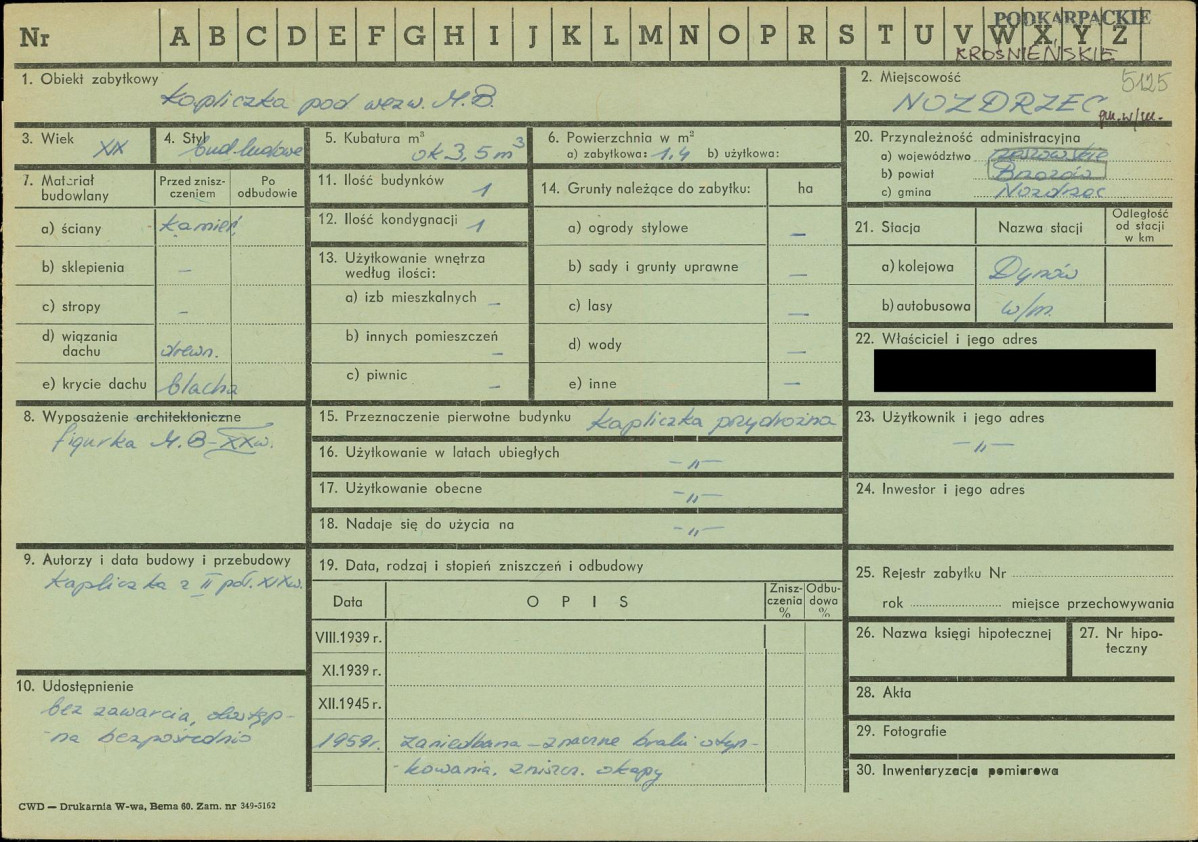 PODKARPACKIE
Nr A B C D E F G H I J K L M N O P R S T U V W X Y Z
KROŚNIEŃSKIE
1. Obiekt zabytkowy
Kapliczka pod wezw. M.B.
2. Miejscowość
5125
NOZDRZEC
3. Wiek
XIX
4. Styl
bud. ludowe
5. Kubatura m³
ok 3,5 m³
6. Powierzchnia w m²
a) zabytkowa: 1.4 b) użytkowa:
20. Przynależność administracyjna
a) województwo rzeszowskie
b) powiat Brzozów
c) gmina Nozdrzec
7. Materiał budowlany
Przed znisz-
czeniem
Po
odbudowie
a) ściany kamień
b) sklepienia –
c) stropy –
d) wiązania
dachu drewn.
e) krycie dachu blacha
11. Ilość budynków 1
12. Ilość kondygnacji 1
13. Użytkowanie wnętrza
według ilości:
a) izb mieszkalnych –
b) innych pomieszczeń –
c) piwnic –
14. Grunty należące do zabytku: ha
a) ogrody stylowe –
b) sady i grunty uprawne –
c) lasy –
d) wody –
e) inne –
21. Stacja Nazwa stacji
Odległość
od stacji
w km
a) kolejowa Dynów
b) autobusowa w/m.
22. Właściciel i jego adres
8. Wyposażenie architektoniczne
figurka M.B – XX w.
15. Przeznaczenie pierwotne budynku kapliczka przydrożna
16. Użytkowanie w latach ubiegłych –"–
17. Użytkowanie obecne –"–
18. Nadaje się do użycia na –"–
23. Użytkownik i jego adres
–"–
24. Inwestor i jego adres
9. Autorzy i data budowy i przebudowy
Kapliczka z II poł. XIX w.
19. Data, rodzaj i stopień zniszczeń i odbudowy
Data OPIS
Znisz-
czenia
%
Odbu-
dowa
%
VIII.1939 r.
XI.1939 r.
XII.1945 r.
1959 r. zaniedbana – znaczne braki otyn-
kowania, zniszcz. okapy
25. Rejestr zabytku Nr
rok miejsce przechowywania
26. Nazwa księgi hipotecznej
27. Nr hipo-
teczny
28. Akta
29. Fotografie
30. Inwentaryzacja pomiarowa
10. Udostępnienie
bez zawarcia, dostęp-
na bezpośrednio
CWD — Drukarnia W-wa, Bema 60. Zam. nr 349-5162